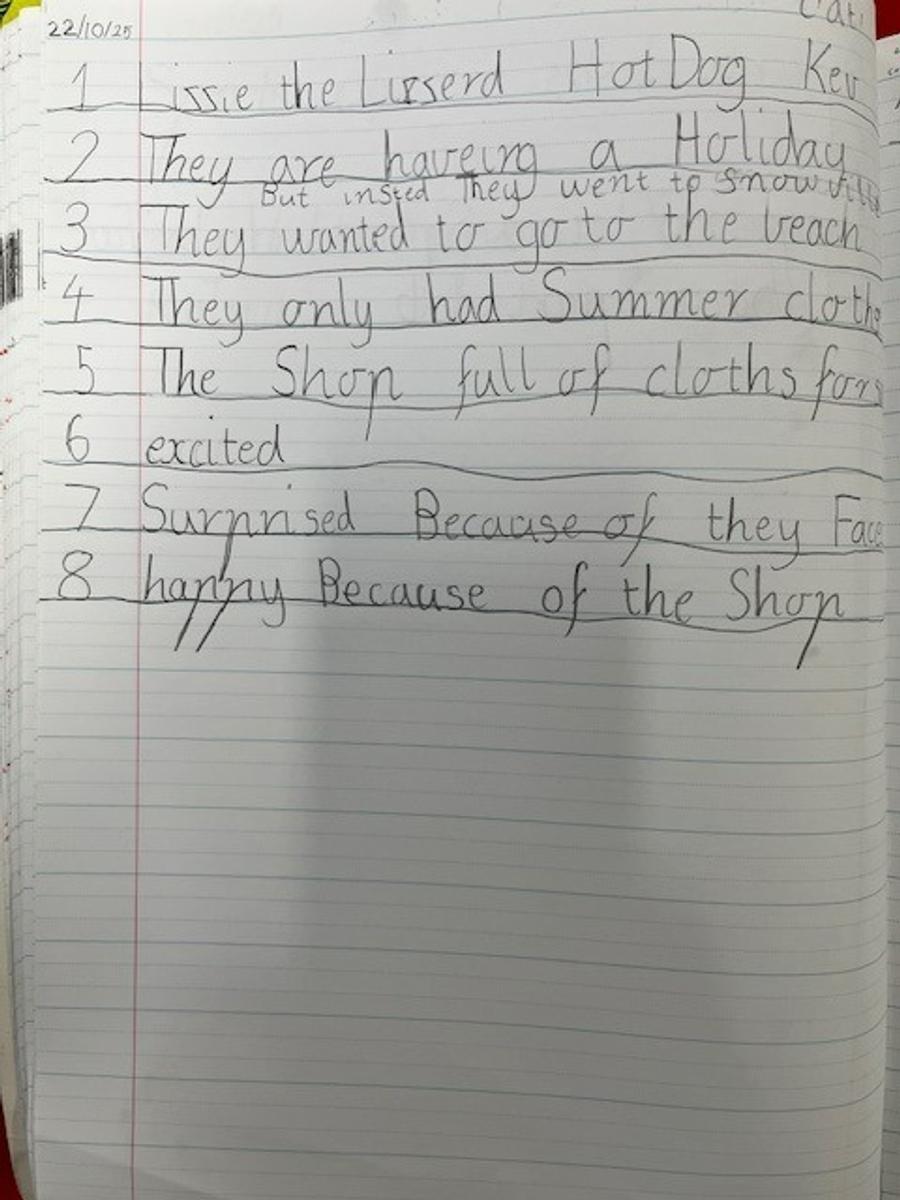 22/10/25
1 Lissie the Lizserd Hot Dog Kev
2 They are haveing a Holiday
But insted They went to Snow
3 They wanted to go to the beach
4 They only had Summer cloths
5 The Shop full of cloths for
6 excited
7 Surprised Becaause of they Face
8 happy Because of the Shop